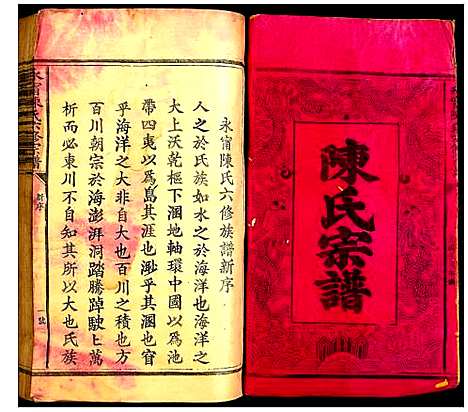 陳氏宗譜
永甯陳氏六修族譜新序
人之於氏族如水之於海洋也海洋之
大上沃乾樞下涸地軸環中國以為池
帶四夷以為島其涯也渺乎其涸也窅
乎海洋之大非自大也百川之積也方
百川朝宗於海澎湃洞踏騰踔駛上萬
析而必東川不自知其所以大也氏族